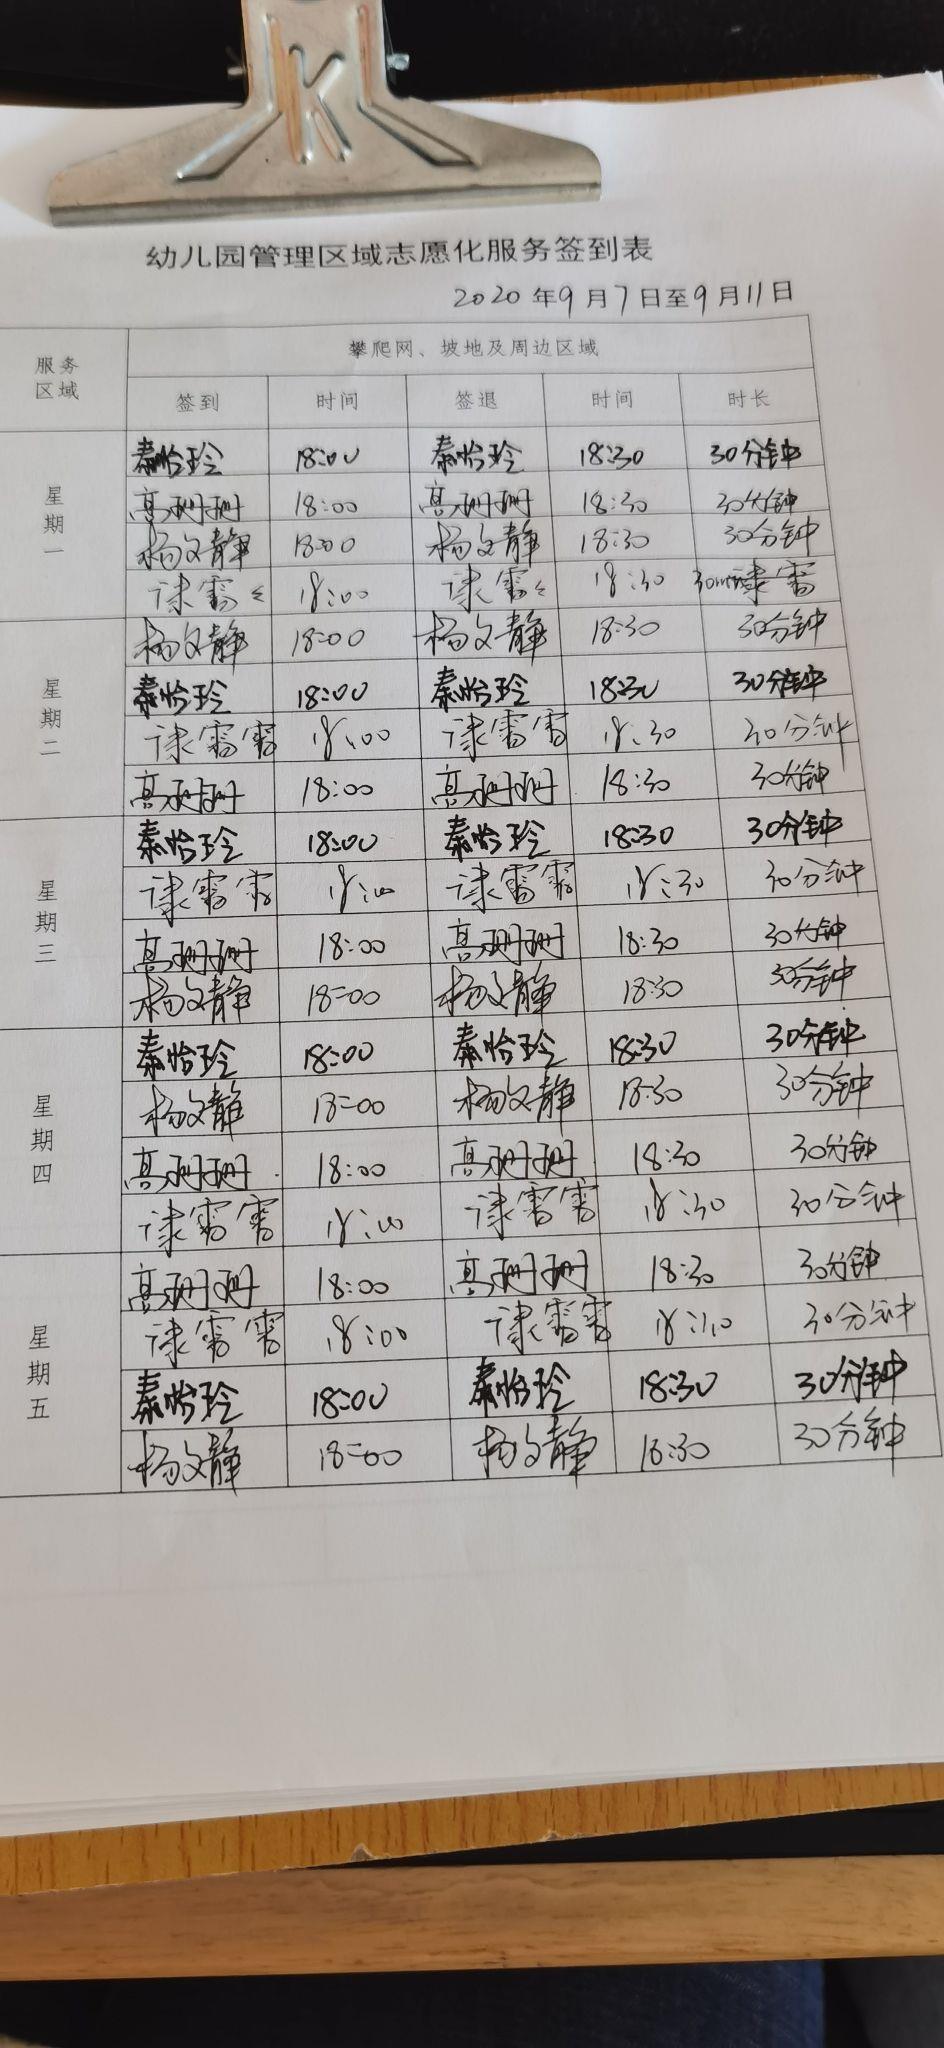 K
幼儿园管理区域志愿化服务签到表
2020年9月7日至9月11日
服务区域 攀爬网、坡地及周边区域
签到 时间 签退 时间 时长
星期一
秦怡玲 18:00 秦怡玲 18:30 30分钟
高珊珊 18:00 高珊珊 18:30 30分钟
杨文静 18:00 杨文静 18:30 30分钟
谏雪 18:00 谏雪 18:30
星期二
杨文静 18:00 杨文静 18:30 30分钟
秦怡玲 18:00 秦怡玲 18:30 30分钟
18:00 18:30 30分钟
高珊珊 18:00 高珊珊 18:30 30分钟
星期三
秦怡玲 18:00 秦怡玲 18:30 30分钟
18:00 18:30 30分钟
高珊珊 18:00 高珊珊 18:30 30分钟
杨文静 18:00 杨文静 18:30 30分钟
星期四
秦怡玲 18:00 秦怡玲 18:30 30分钟
杨文静 18:00 杨文静 18:30 30分钟
高珊珊 18:00 高珊珊 18:30 30分钟
18:00 18:30 30分钟
星期五
高珊珊 18:00 高珊珊 18:30 30分钟
18:00 18:30 30分钟
秦怡玲 18:00 秦怡玲 18:30 30分钟
杨文静 18:00 杨文静 18:30 30分钟